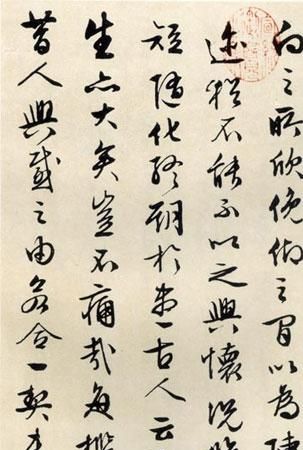 向之所欣俛仰之間以為陳
迹猶不能不以之興懷況脩
短隨化終期於盡古人云
生亦大矣豈不痛哉每攬
昔人興感之由若合一契未